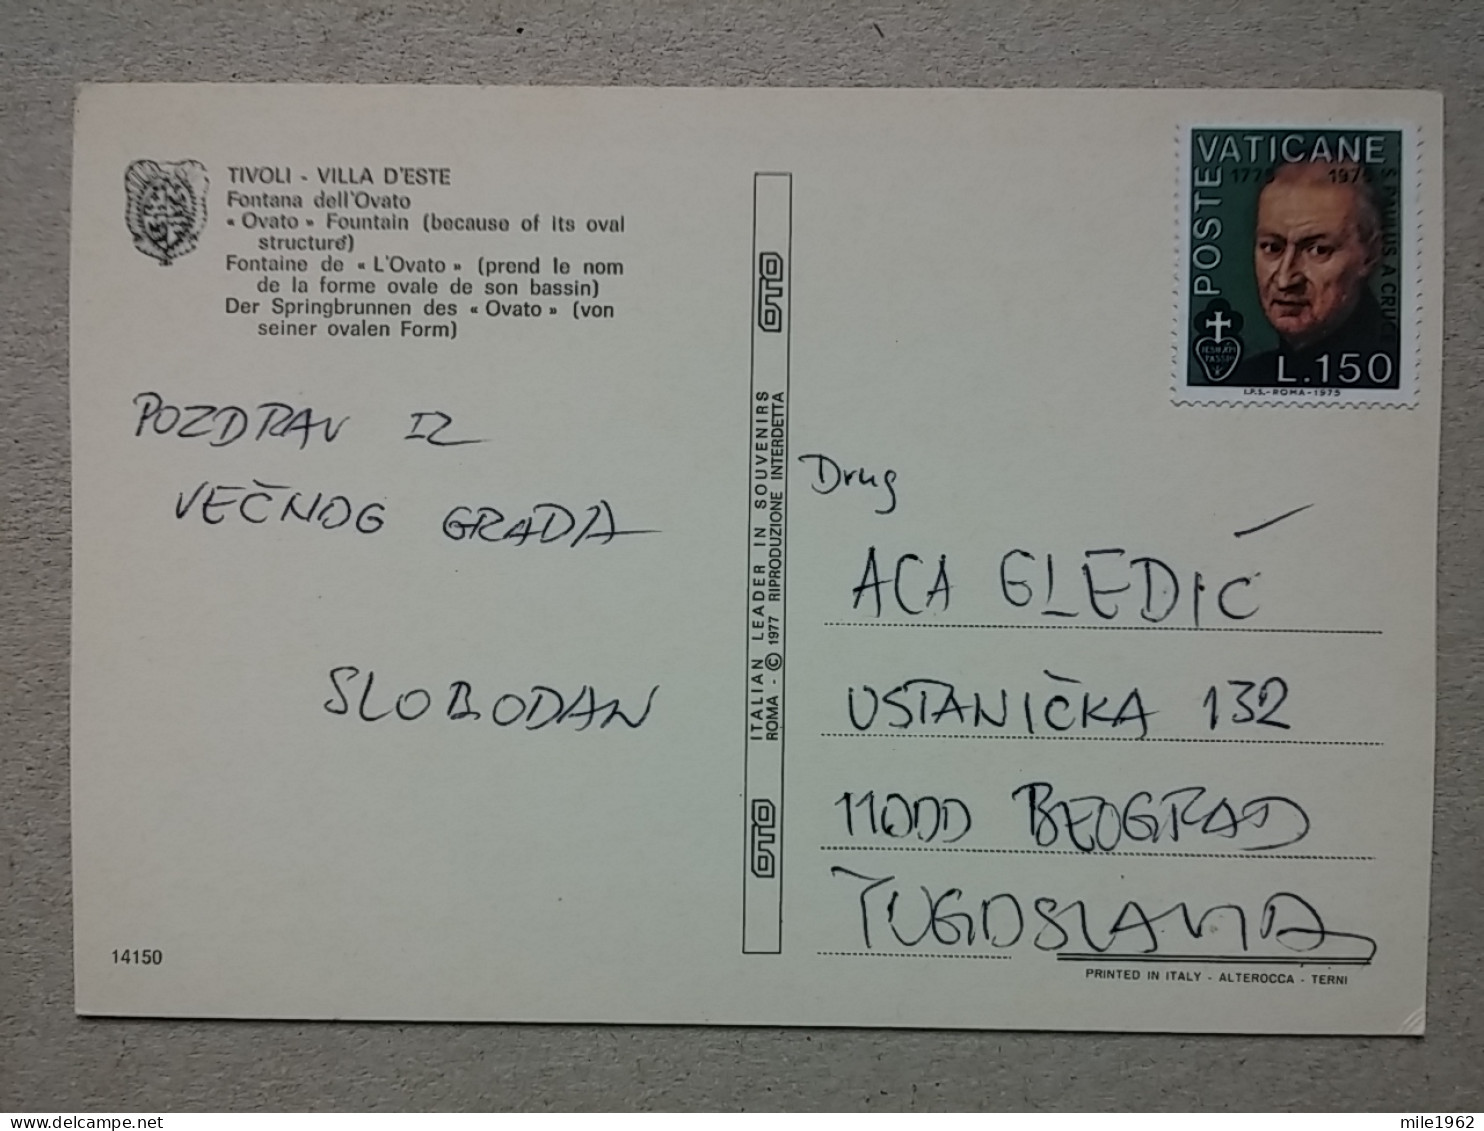 TIVOLI - VILLA D'ESTE
Fontana dell'Ovato
« Ovato » Fountain (because of its oval
structure)
Fontaine de « L'Ovato » (prend le nom
de la forme ovale de son bassin)
Der Springbrunnen des « Ovato » (von
seiner ovalen Form)
POZDRAV IZ
VEČNOG GRADA
SLOBODAN
14150
OTO
ITALIAN LEADER IN SOUVENIRS
ROMA - © 1977 RIPRODUZIONE INTERDETTA
OTO
POSTE VATICANE
1775 1975
S. PAULUS A CRUCE
L.150
I.P.S.-ROMA-1975
Drug
ACA GLEDIĆ
USTANIČKA 132
11000 BEOGRAD
JUGOSLAVIJA
PRINTED IN ITALY - ALTEROCCA - TERNI
mile1962